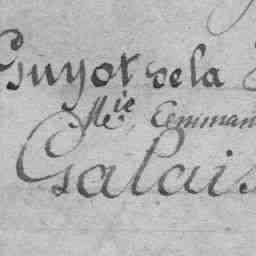 Guyot de la
Mie Emman
Galais